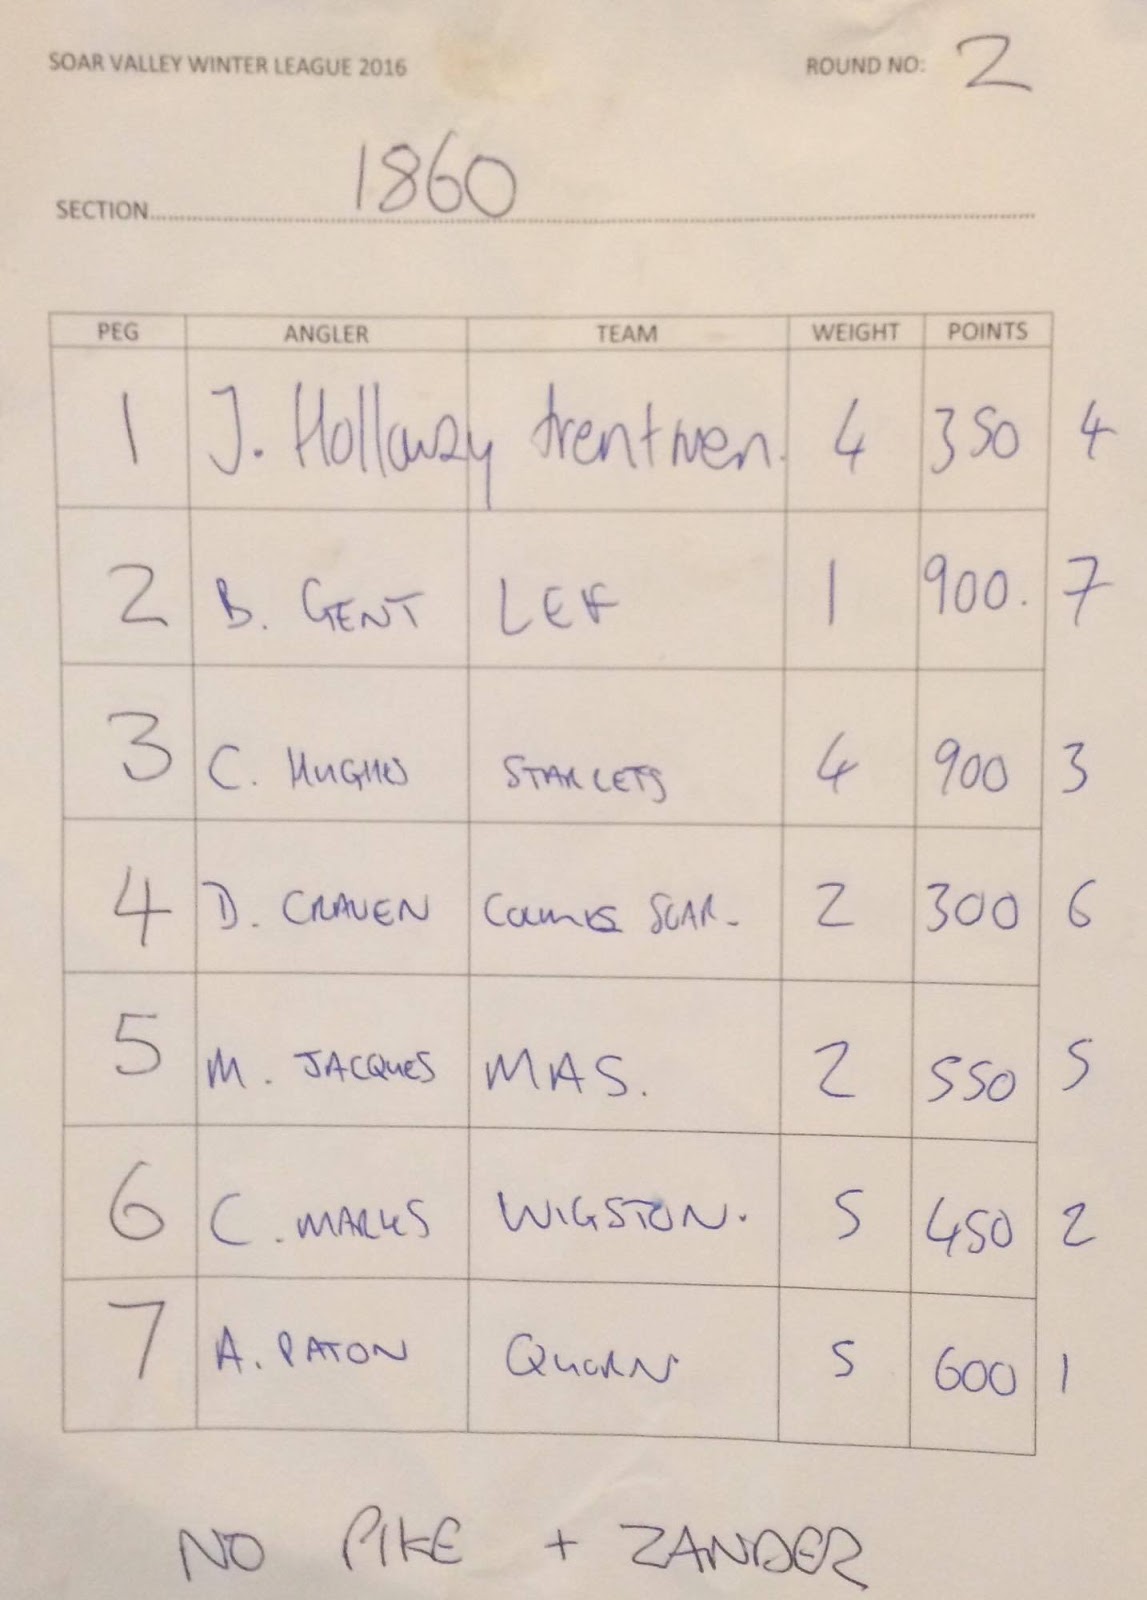 SOAR VALLEY WINTER LEAGUE 2016 ROUND NO: 2
SECTION 1860
PEG ANGLER TEAM WEIGHT POINTS
1 J. Holloway trentmen. 4 350 4
2 B. GENT LEF 1 900. 7
3 C. HUGHES STARLETS 4 900 3
4 D. CRAVEN SOAR- 2 300 6
5 M. JACQUES MAS. 2 550 5
6 C. MARKS WIGSTON. 5 450 2
7 A. PATON QUORN 5 600 1
NO PIKE + ZANDER